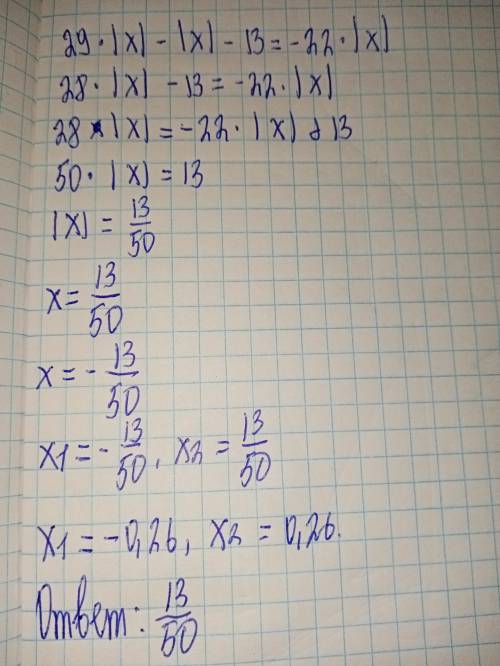 29 · |x| - |x| - 13 = -22 · |x|
28 · |x| - 13 = -22 · |x|
28 · |x| = -22 · |x| + 13
50 · |x| = 13
|x| = 13/50
x = 13/50
x = - 13/50
x1 = - 13/50, x2 = 13/50
x1 = -0,26, x2 = 0,26.
Ответ: 13/50